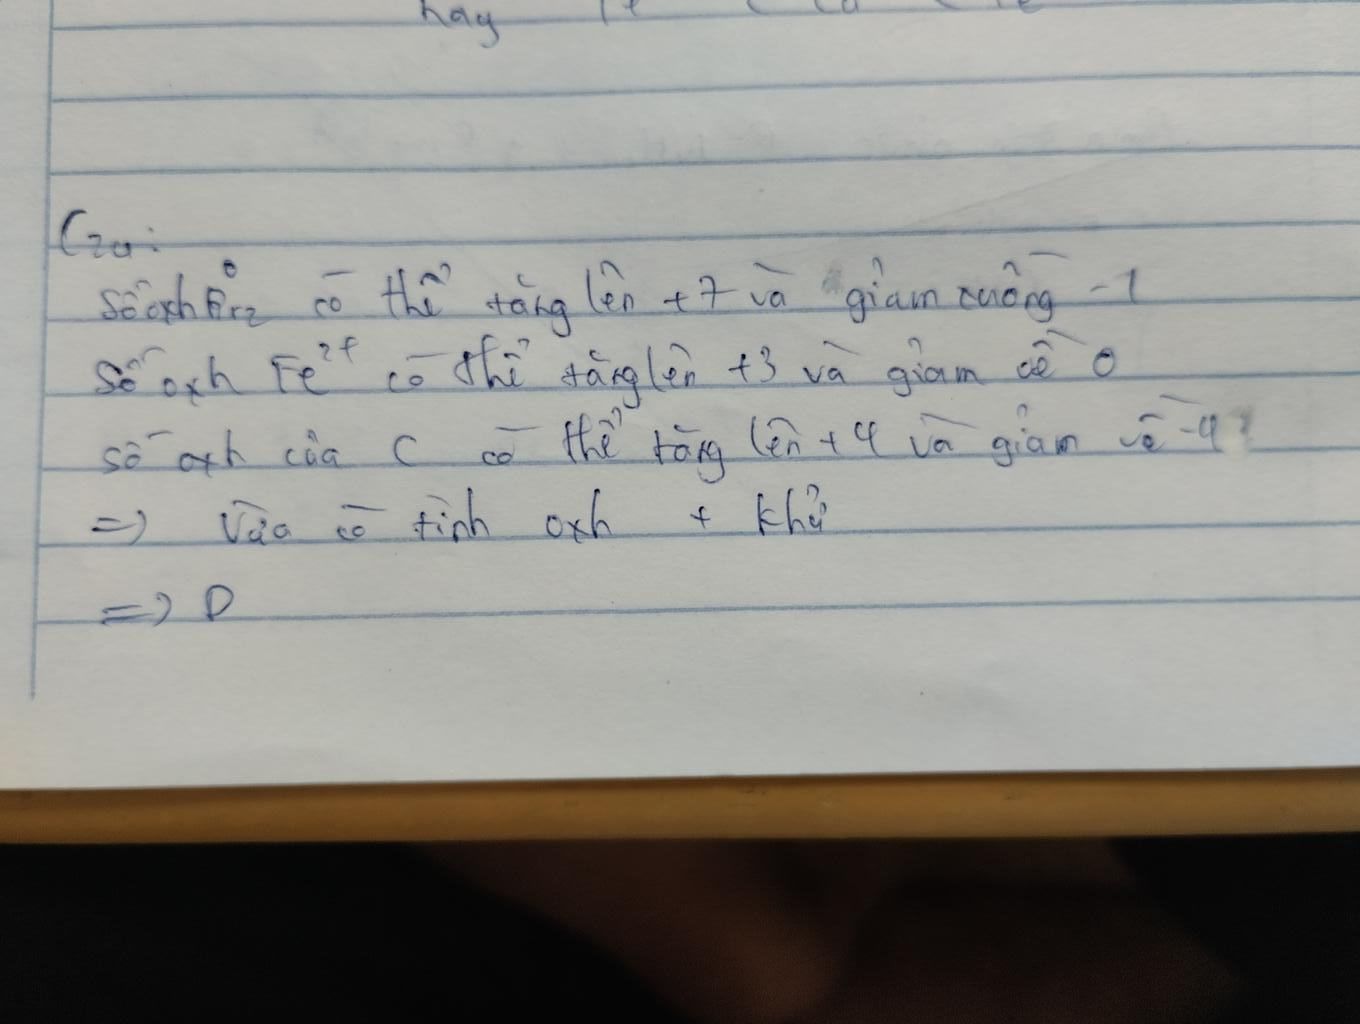 hay
C24:
Số oxh Br₂⁰ có thể tăng lên +7 và giảm xuống -1
Số oxh Fe²⁺ có thể tăng lên +3 và giảm về 0
số oxh của C có thể tăng lên +4 và giảm về -4
=> Vừa có tính oxh + khử
=> D